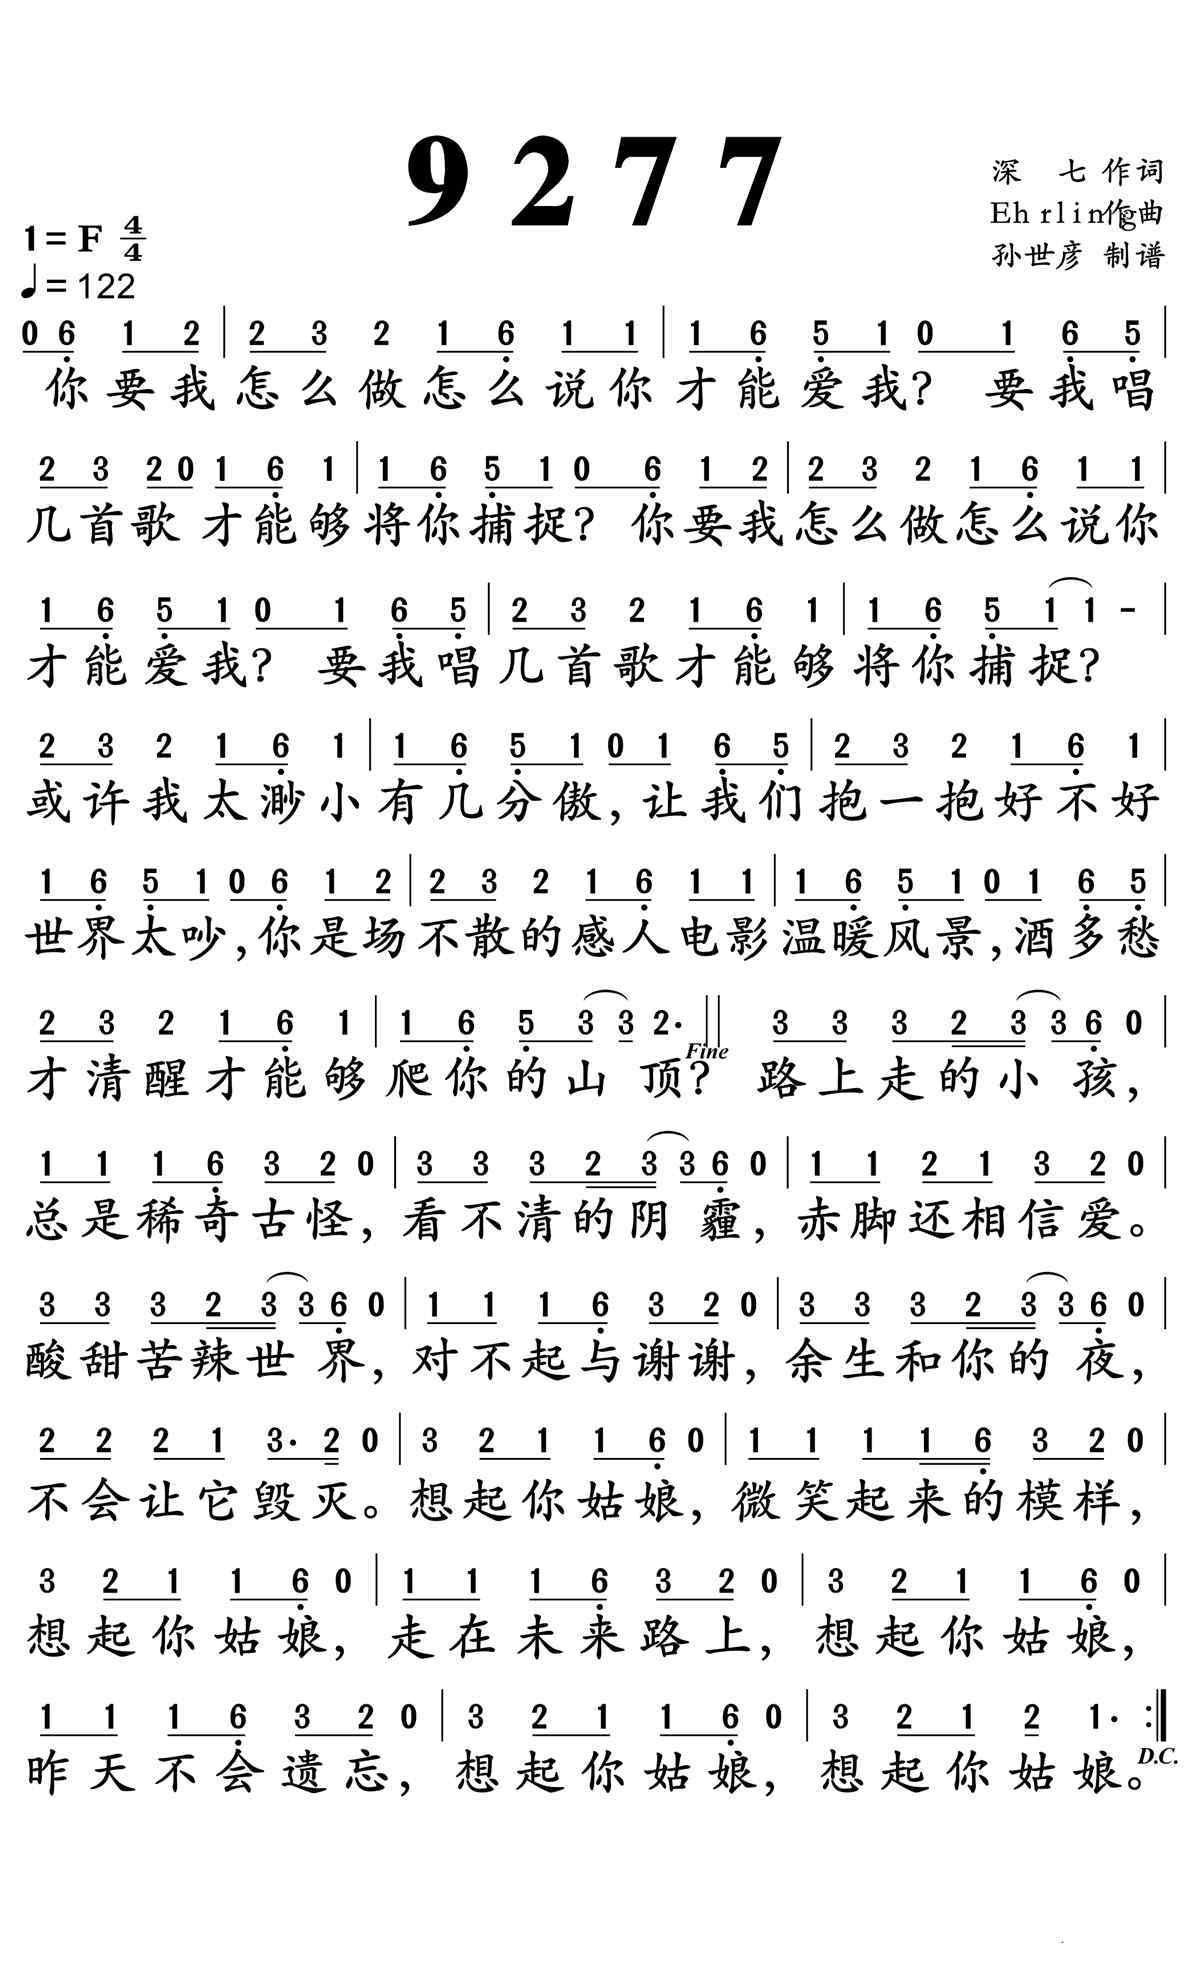 9277
深 七 作词
Ehrling作曲
孙世彦 制谱
1=F 4/4
♩=122
0 6 1 2 | 2 3 2 1 6 1 1 | 1 6 5 1 0 1 6 5 |
你要我怎么做怎么说你才能爱我? 要我唱
2 3 2 0 1 6 1 | 1 6 5 1 0 6 1 2 | 2 3 2 1 6 1 1 |
几首歌 才能够将你捕捉? 你要我怎么做怎么说你
1 6 5 1 0 1 6 5 | 2 3 2 1 6 1 | 1 6 5 1 1 - |
才能爱我? 要我唱几首歌才能够将你捕捉?
2 3 2 1 6 1 | 1 6 5 1 0 1 6 5 | 2 3 2 1 6 1 |
或许我太渺小有几分傲,让我们抱一抱好不好
1 6 5 1 0 6 1 2 | 2 3 2 1 6 1 1 | 1 6 5 1 0 1 6 5 |
世界太吵,你是场不散的感人电影温暖风景,酒多愁
2 3 2 1 6 1 | 1 6 5 3 3 2· || 3 3 3 2 3 3 6 0 |
Fine
才清醒才能够爬你的山顶? 路上走的小孩,
1 1 1 6 3 2 0 | 3 3 3 2 3 3 6 0 | 1 1 2 1 3 2 0 |
总是稀奇古怪,看不清的阴霾,赤脚还相信爱。
3 3 3 2 3 3 6 0 | 1 1 1 6 3 2 0 | 3 3 3 2 3 3 6 0 |
酸甜苦辣世界,对不起与谢谢,余生和你的夜,
2 2 2 1 3· 2 0 | 3 2 1 1 6 0 | 1 1 1 1 6 3 2 0 |
不会让它毁灭。想起你姑娘,微笑起来的模样,
3 2 1 1 6 0 | 1 1 1 6 3 2 0 | 3 2 1 1 6 0 |
想起你姑娘,走在未来路上,想起你姑娘,
1 1 1 6 3 2 0 | 3 2 1 1 6 0 | 3 2 1 2 1· :|
D.C.
昨天不会遗忘,想起你姑娘,想起你姑娘。